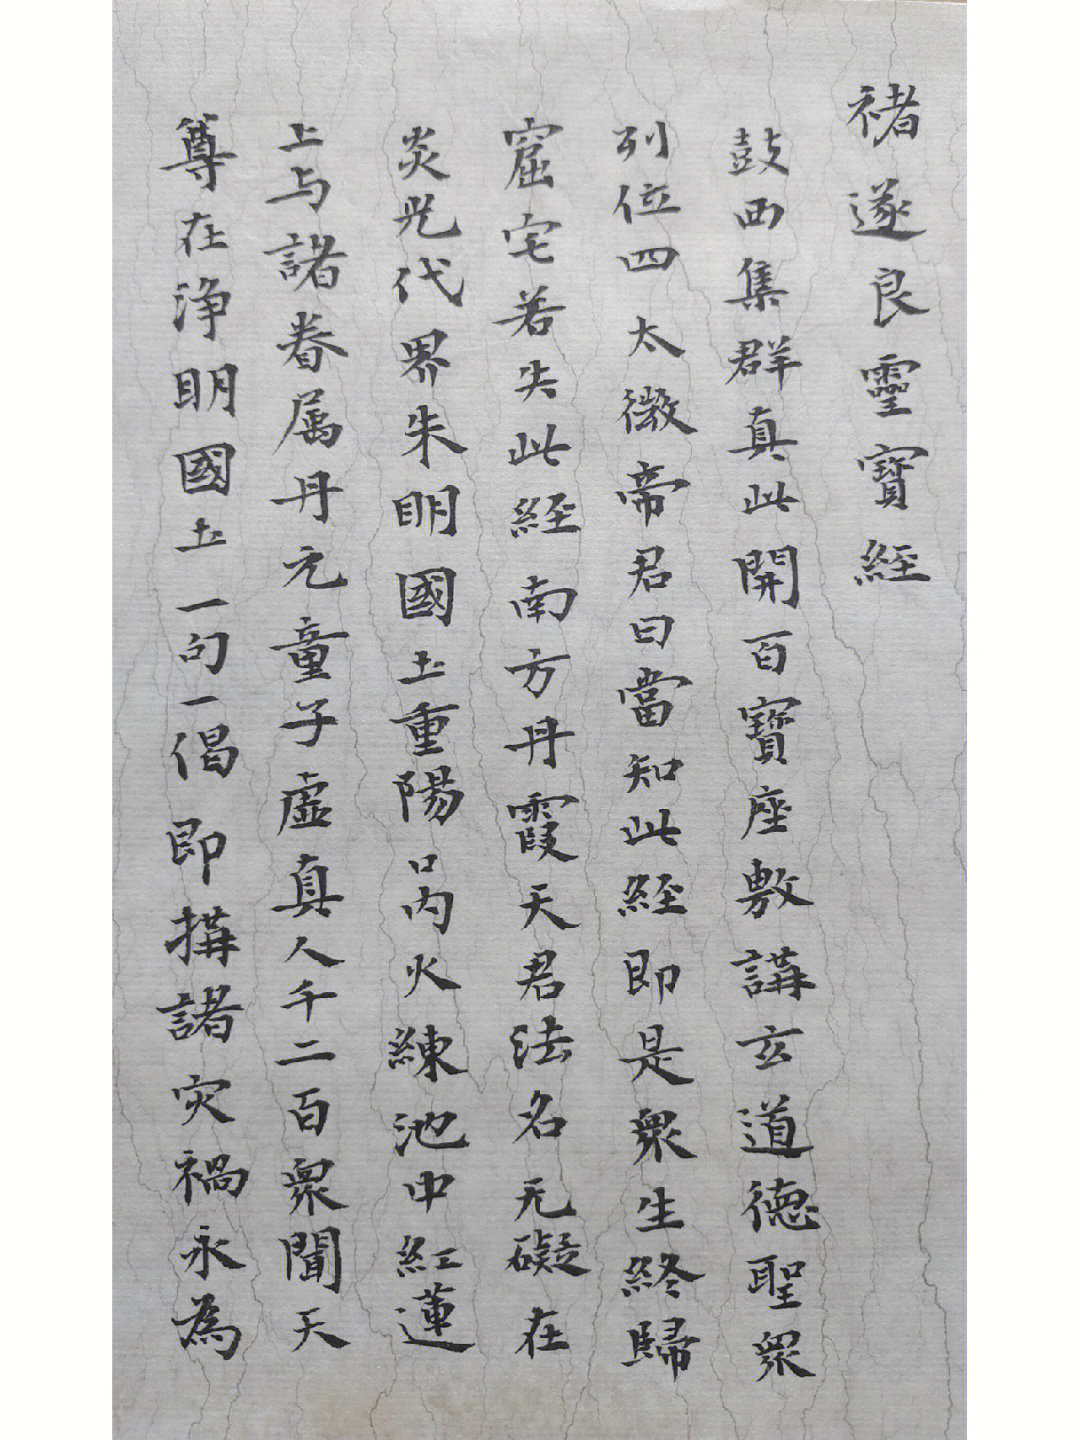 褚遂良靈寶經
鼓西集群真此開百寶座敷講玄道德聖眾
列位四太微帝君曰當知此經即是眾生終歸
窟宅若失此經南方丹霞天君法名无礙在
炎光代界朱明國土重陽㕯火練池中紅蓮
上与諸眷属丹元童子虛真人千二百眾聞天
尊在淨明國土一句一偈即搆諸灾禍永為